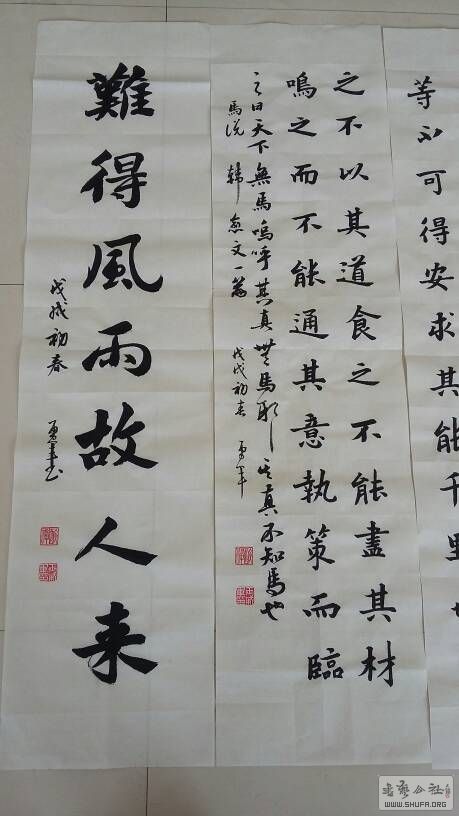 等不可得安求其能千里
之不以其道食之不能盡其材
鳴之而不能通其意執策而臨
之曰天下無馬嗚呼其真無馬耶其真不知馬也
馬说 韓愈文一篇 戊戌初春
難得風雨故人来
戊戌初春
WWW.SHUFA.ORG